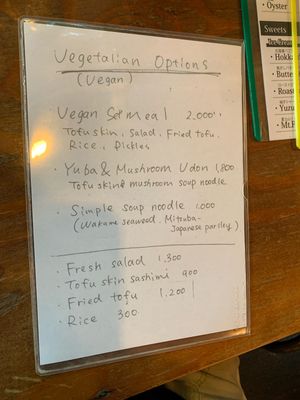 Vegetalian Options
(Vegan)
Vegan Set meal 2.000
Tofu skin, Salad, Fried tofu,
Rice, Pickles
· Yuba & Mushroom Udon 1,800
Tofu skin & mushroom soup noodle
· Simple soup noodle 1.000
(Wakame seaweed, Mitsuba-
Japanese parsley)
· Fresh salad 1.300
· Tofu skin sashimi 900
· Fried tofu 1.200
· Rice 300
· Oyster
Sweets
Ice Cream
· Hokka
· Butte
· Roas
· Yuzu